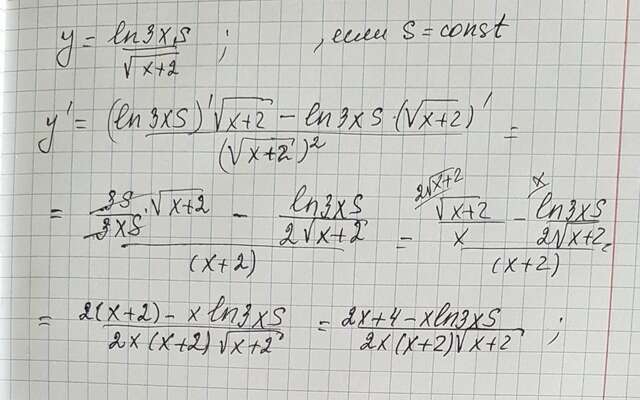 y = ln3xS / √(x+2) ; , если S = const
y' = ((ln3xS)' √(x+2) − ln3xS · (√(x+2))') / (√(x+2))² =
= (3S/3xS · √(x+2) − ln3xS / 2√(x+2)) / (x+2) = (2√(x+2) √(x+2) / x − x ln3xS / 2√(x+2)) / (x+2)
= (2(x+2) − x ln3xS) / (2x(x+2)√(x+2)) = (2x+4 − x ln3xS) / (2x(x+2)√(x+2)) ;